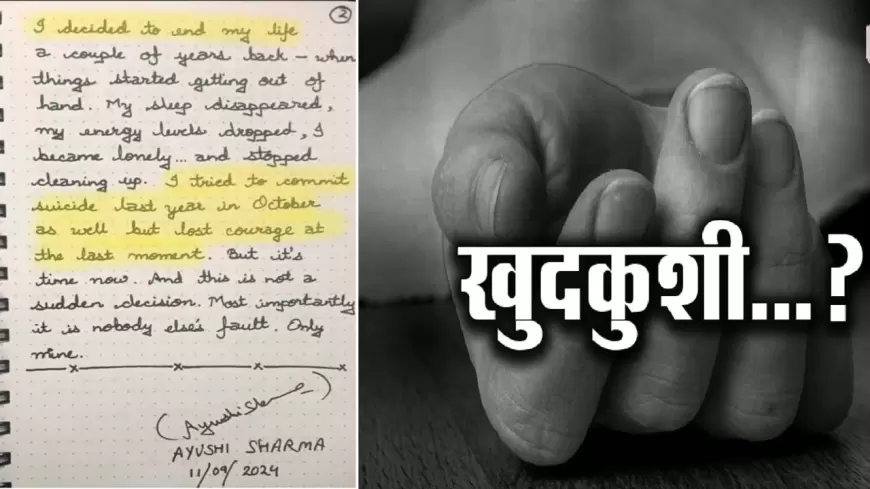 2
I decided to end my life
a couple of years back - when
things started getting out of
hand. My sleep disappeared,
my energy levels dropped, I
became lonely... and stopped
cleaning up. I tried to commit
suicide last year in October
as well but lost courage at
the last moment. But it's
time now. And this is not a
sudden decision. Most importantly
it is nobody else's fault. Only
mine.
(Ayushi Sharma)
AYUSHI SHARMA
11/09/2024
खुदकुशी...?